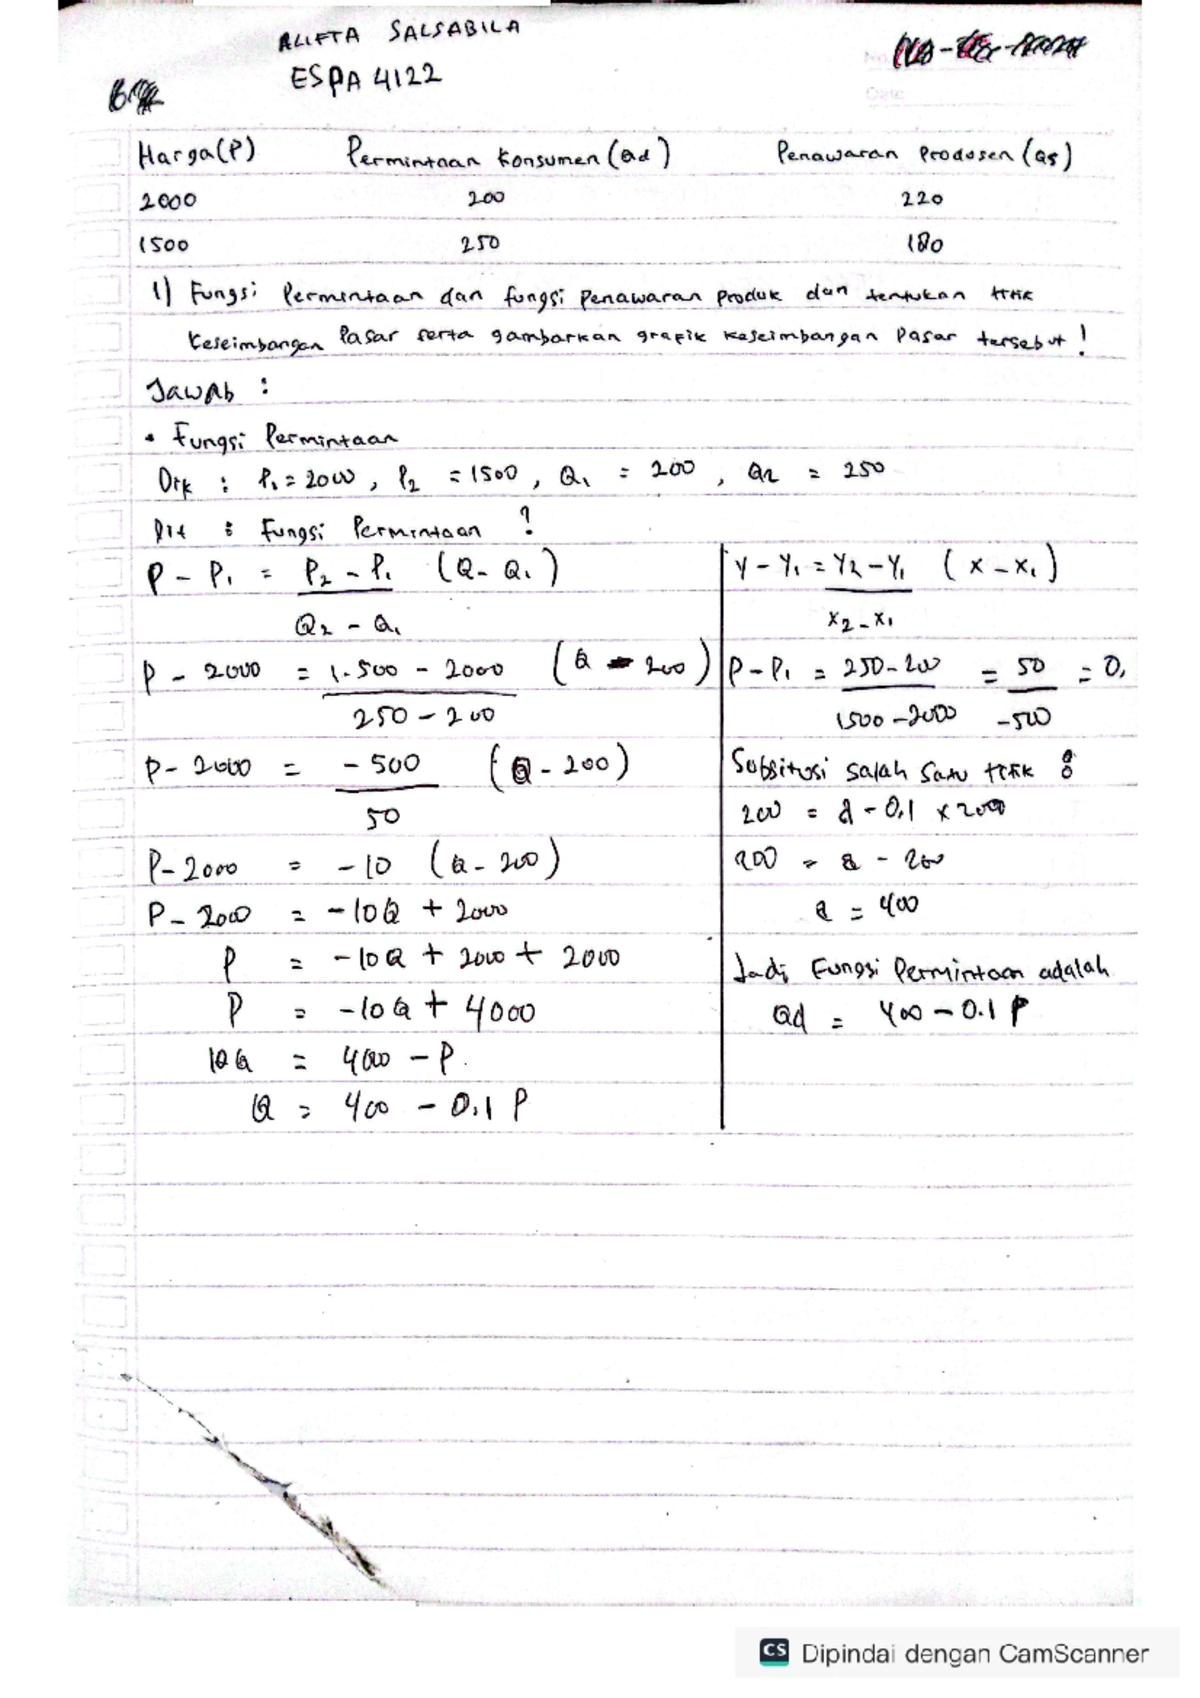 ALIFTA SALSABILA
ESPA 4122
No
Date
Harga(P) Permintaan Konsumen (Qd) Penawaran Produsen (Qs)
2000 200 220
1500 250 180
1) Fungsi Permintaan dan fungsi penawaran produk dan tentukan titik
Keseimbangan Pasar serta gambarkan grafik keseimbangan Pasar tersebut !
Jawab :
• Fungsi Permintaan
Dik : P1 = 2000 , P2 = 1500 , Q1 = 200 , Q2 = 250
Dit : Fungsi Permintaan ?
P - P1 = P2 - P1 (Q - Q1)
Q2 - Q1
P - 2000 = 1.500 - 2000 (Q - 200)
250 - 200
P - 2000 = - 500 (Q - 200)
50
P - 2000 = - 10 (Q - 200)
P - 2000 = - 10Q + 2000
P = - 10Q + 2000 + 2000
P = - 10Q + 4000
10Q = 4000 - P.
Q = 400 - 0.1 P
Y - Y1 = Y2 - Y1 (X - X1)
X2 - X1
P - P1 = 250 - 200 = 50 = 0,
1500 - 2000 -500
Subsitusi salah satu titik :
200 = a - 0,1 x 2000
200 = a - 200
a = 400
Jadi Fungsi Permintaan adalah
Qd = 400 - 0.1 P
CS Dipindai dengan CamScanner